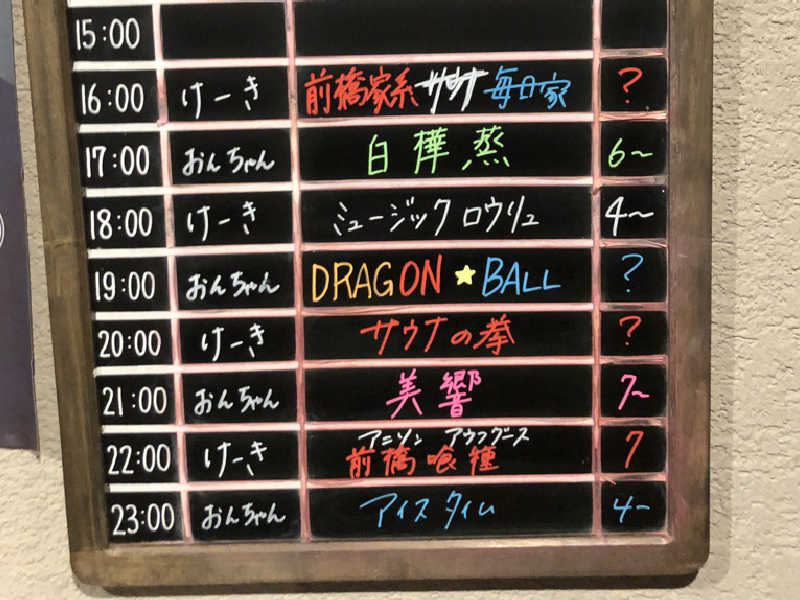 15:00
16:00 けーき 前橋家系サウナ毎日家 ?
17:00 おんちゃん 白樺蒸 6~
18:00 けーき ミュージック ロウリュ 4~
19:00 おんちゃん DRAGON★BALL ?
20:00 けーき サウナの拳 ?
21:00 おんちゃん 美響 7~
アニソン アウフグース
22:00 けーき 前橋喰種 7
23:00 おんちゃん アイスタイム 4~